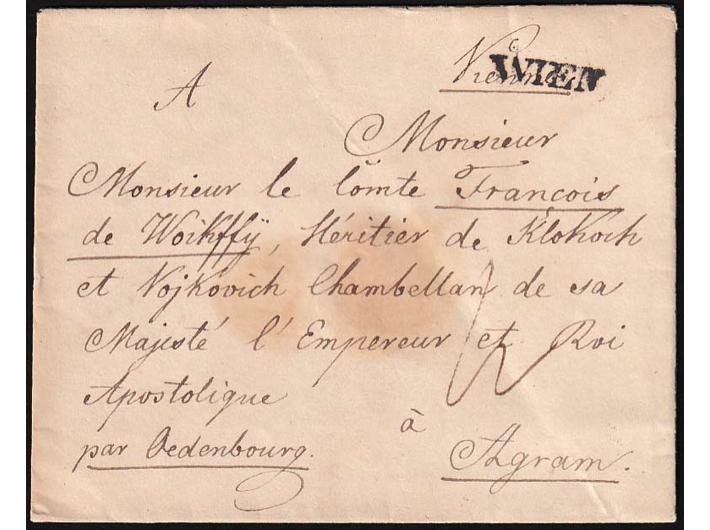 Vienne
WIEN
A
Monsieur
Monsieur le Comte François
de Woikffÿ, Héritier de Klokoch
et Vojkovich Chambellan de sa
Majesté l'Empereur et Roi
Apostolique
à
par Oedenbourg.
Agram.